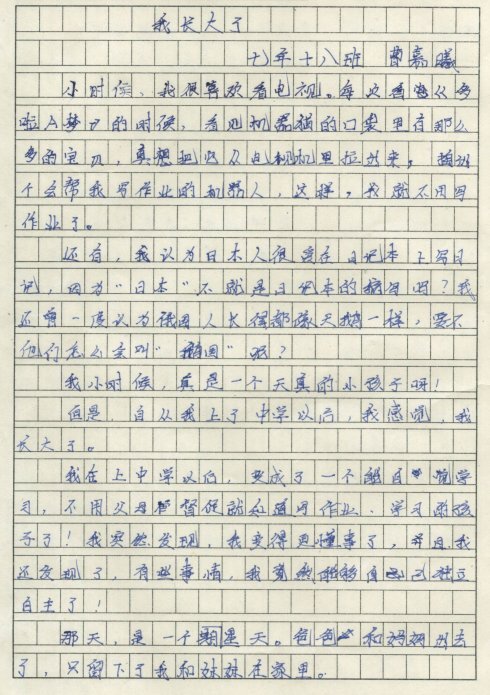 我长大了
七年十八班 曹嘉曦
小时候，我很喜欢看电视。每次看《哆
啦A梦》的时候，看见机器猫的口袋里有那么
多的宝贝，真想把它从电视机里拉出来，
个会帮我写作业的机器人，这样，我就不用写
作业了。
还有，我认为日本人很爱在日记本上写日
记，因为“日本”不就是日记本的缩写吗？我
还曾一度认为俄国人长得都像天鹅一样，要不
他们怎么会叫“鹅国”呢？
我小时候，真是一个天真的小孩子呀！
但是，自从我上了中学以后，我感觉，我
长大了。
我在上中学以后，变成了一个能自觉学
习，不用父母督促就知道写作业、学习的孩
子了！我突然发现，我变得更懂事了，并且我
还发现了，有些事情，我竟然能够自己独立
自主了！
那天，是一个星期天。爸爸和妈妈出去
了，只留下了我和妹妹在家里。